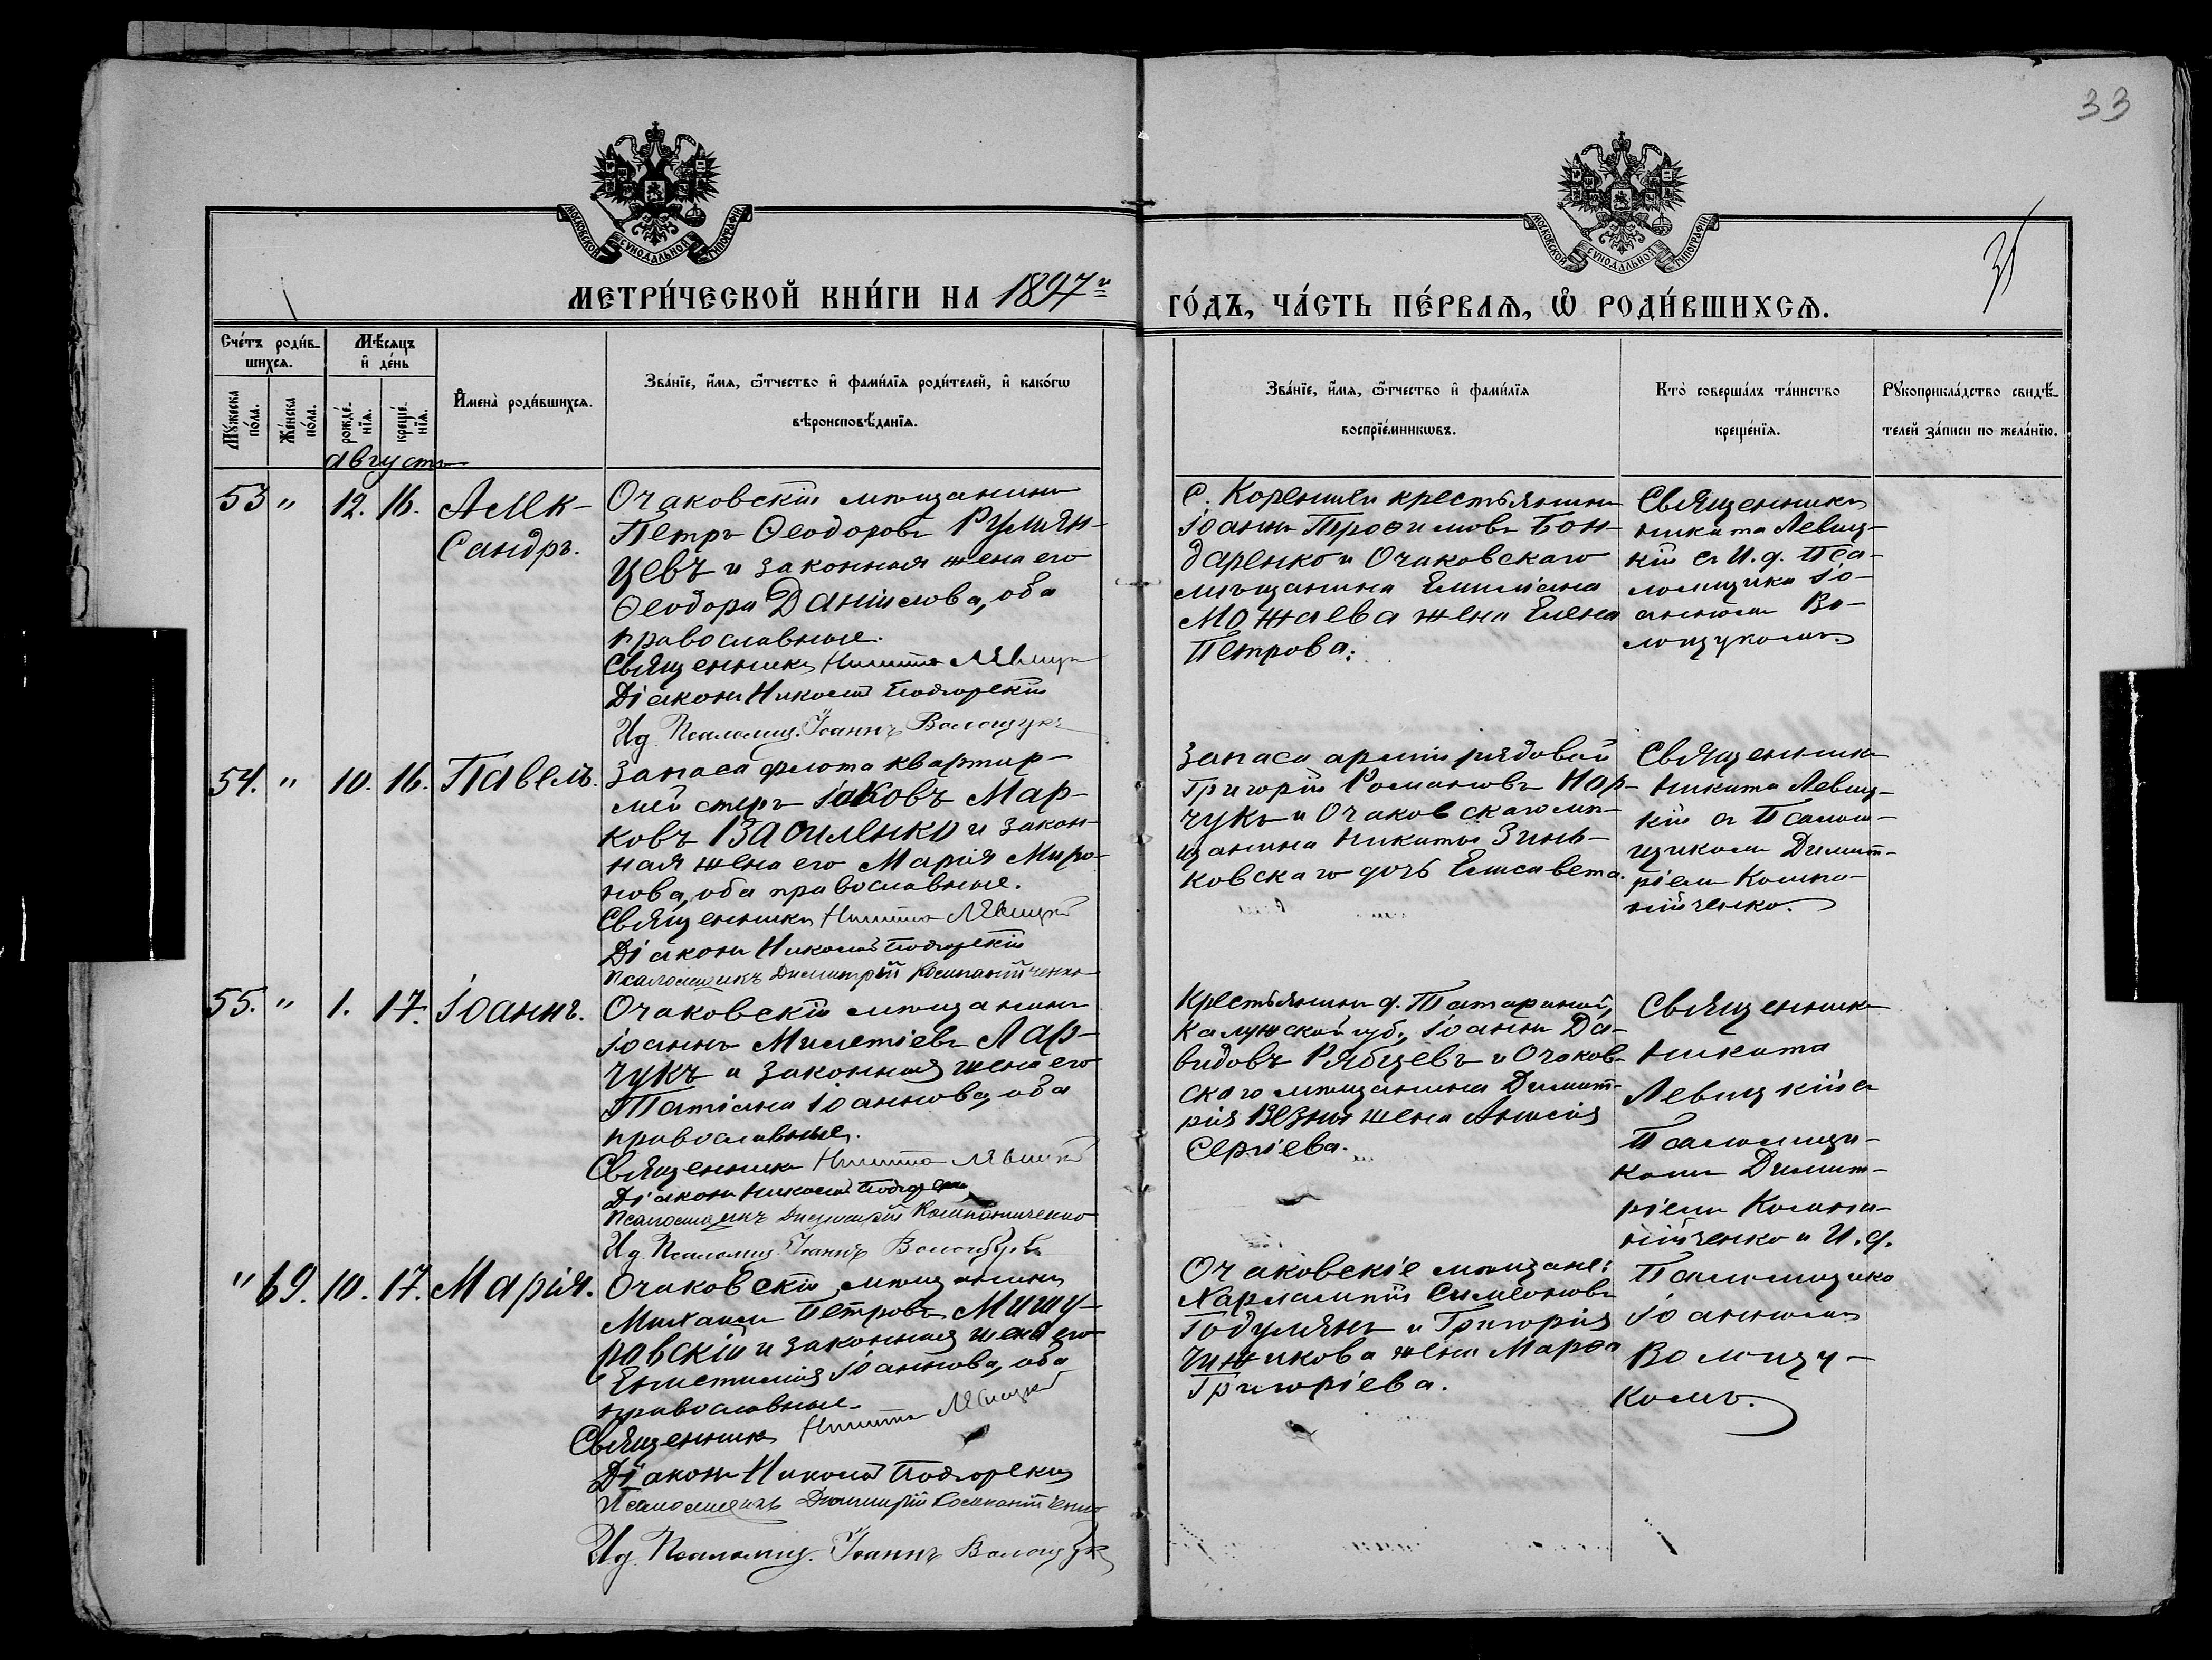 33
35
МОСКОВСКОЙ СУНОДАЛЬНОЙ ТИПОГРАФІИ
МОСКОВСКОЙ СУНОДАЛЬНОЙ ТИПОГРАФІИ
МЕТРИ́ЧЕСКОЙ КНИ́ГИ НА 1897й
ГО́ДЪ, ЧА́СТЬ ПЕ́РВАѦ, Ѡ҆ РОДИ́ВШИХСѦ.
Сче́тъ роди́в-
шихсѧ.
Мꙋ́жеска
по́ла.
Же́нска
по́ла.
Мѣ́сѧцъ
и҆ де́нь
рожде́-
нїѧ.
креще́-
нїѧ.
И҆мена̀ роди́вшихсѧ.
Зва́нїе, и҆́мѧ, ѻ҆́тчество и҆ фами́лїѧ роди́телей, и҆ како́гѡ
вѣроисповѣ́данїѧ.
Зва́нїе, и҆́мѧ, ѻ҆́тчество и҆ фами́лїѧ
воспрїе́мникѡвъ.
Кто̀ соверша́лъ та́инство
креще́нїѧ.
Рꙋкоприкла́дство свидѣ́-
телей за́писи по жела́нїю.
августъ
53 " 12. 16. Алек-
сандръ.
Очаковскій мѣщанинъ
Петръ Ѳеодоровъ Румян-
цевъ и законная жена его
Ѳеодора Даніилова, оба
православные.
Священникъ Никита Левицкій
Діаконъ Николай Подгорскій
И д. Псаломщ. Іоаннъ Волощукъ
С. Коренихи крестьянинъ
Іоаннъ Трофимовъ Бон-
даренко и Очаковскаго
мѣщанина Емиліана
Можаева жена Елена
Петрова.
Священникъ
Никита Левиц-
кій съ И. д. Пса-
ломщика Іо-
анномъ Во-
лощукомъ.
54. " 10. 16. Павелъ.
Запаса флота квартир-
мейстеръ Іаковъ Мар-
ковъ Василенко и закон-
ная жена его Марія Миро-
нова, оба православные.
Священникъ Никита Левицкій
Діаконъ Николай Подгорскій
Псаломщикъ Димитрій Компанійченко
Запаса арміи рядовой
Григорій Романовъ Нор-
чукъ и Очаковскаго мѣ-
щанина Никиты Зинь-
ковскаго дочь Елисавета.
Священникъ
Никита Левиц-
кій съ Псалом-
щикомъ Димит-
ріемъ Компа-
нійченко.
55. " 1. 17. Іоаннъ.
Очаковскій мѣщанинъ
Іоаннъ Милетіевъ Лар-
чукъ и законная жена его
Татіана Іоаннова, оба
православные.
Священникъ Никита Левицкій
Діаконъ Николай Подгорскій
Псаломщикъ Димитрій Компанійченко
И д. Псаломщ. Іоаннъ Волощукъ
Крестьянинъ д. Татариной,
Калужской губ., Іоаннъ Да-
видовъ Рябцевъ и Очаков-
скаго мѣщанина Димит-
рія жена
Сергіева.
Священникъ
Никита
Левицкій съ
Псаломщи-
комъ Димит-
ріемъ Компа-
нійченко и И. д.
" 69. 10. 17. Марія.
Очаковскій мѣщанинъ
Михаилъ Петровъ Мишу-
ровскій и законная жена его
Епистимія Іоаннова, оба
православные.
Священникъ Никита Левицкій
Діаконъ Николай Подгорскій
Псаломщикъ Димитрій Компанійченко
И д. Псаломщ. Іоаннъ Волощукъ
Очаковскіе мѣщане:
Харлампій Симеоновъ
Годулянъ и Григорія
Чижикова жена Марѳа
Григоріева.
Псаломщика
Іоанномъ
Волощу-
комъ.